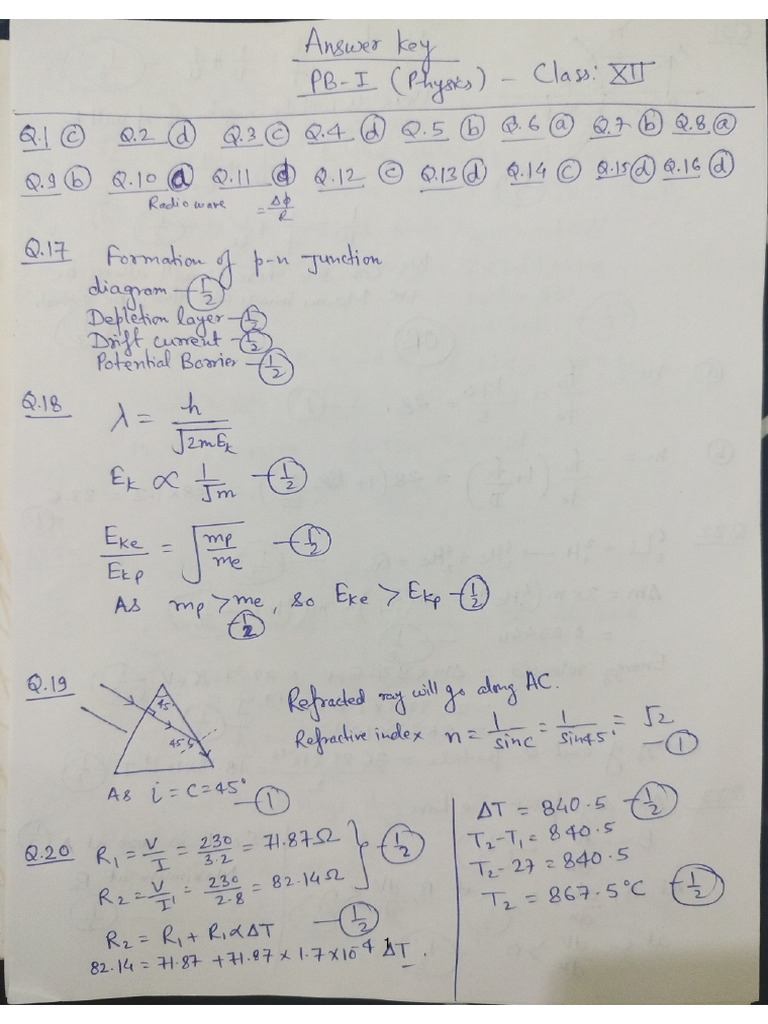 Answer key
PB-I (Physics) - Class: XII
Q.1 (c) Q.2 (d) Q.3 (c) Q.4 (d) Q.5 (b) Q.6 (a) Q.7 (b) Q.8 (a)
Q.9 (b) Q.10 (a) Q.11 (d) Q.12 (c) Q.13 (d) Q.14 (c) Q.15 (d) Q.16 (d)
Radio wave = Δϕ/R
Q.17 Formation of p-n Junction
diagram - (1/2)
Depletion layer - (1/2)
Drift current - (1/2)
Potential Barrier - (1/2)
Q.18 λ = h/√2mEk
Ek ∝ 1/√m - (1/2)
Eke/Ekp = √mp/me - (1/2)
As mp > me, so Eke > Ekp - (1/2)
(1/2)
Q.19
45°
45°
Refracted ray will go along AC.
Refractive index n = 1/sinc = 1/sin45° = √2
- (1)
As i = c = 45° - (1)
Q.20 R1 = V/I = 230/3.2 = 71.87Ω
R2 = V/I' = 230/2.8 = 82.14Ω
- (1/2)
R2 = R1 + R1αΔT - (1/2)
82.14 = 71.87 + 71.87 × 1.7×10⁻⁴ ΔT.
ΔT = 840.5 - (1/2)
T2 - T1 = 840.5
T2 - 27 = 840.5
T2 = 867.5°C - (1/2)